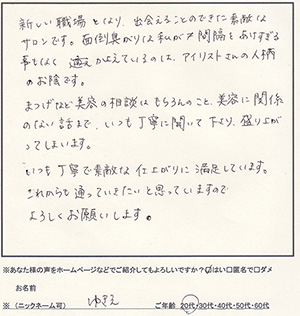 新しい職場となり、出会えることのできた素敵な
サロンです。面倒臭がりな私が
間隔をあけすぎる
事もなく通えているのは、アイリストさんの人柄
のお陰です。
まつげなど美容の相談はもちろんのこと、美容に関係
のない話まで、いつも丁寧に聞いて下さり、盛り上が
ってしまいます。
いつも丁寧で素敵な仕上がりに満足しています。
これからも通っていきたいと思っていますので
よろしくお願いします。
※あなた様の声をホームページなどでご紹介してもよろしいですか?☑はい□匿名で□ダメ
お名前
※(ニックネーム可) ゆきえ ご年齢 20代・30代・40代・50代・60代